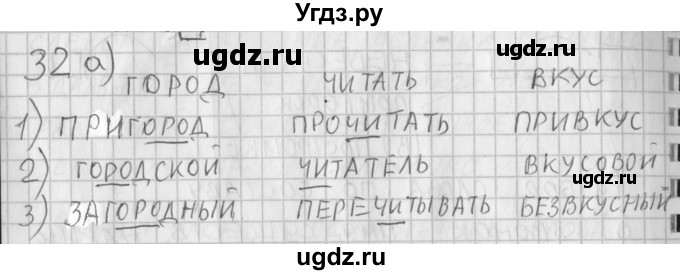 Угдз.ру
32 а)
ГОРОД ЧИТАТЬ ВКУС
1) ПРИГОРОД ПРОЧИТАТЬ ПРИВКУС
2) ГОРОДСКОЙ ЧИТАТЕЛЬ ВКУСОВОЙ
3) ЗАГОРОДНЫЙ ПЕРЕЧИТЫВАТЬ БЕЗВКУСНЫЙ
ugdz.ru
ugdz.ru
ugdz.ru
ugdz.ru